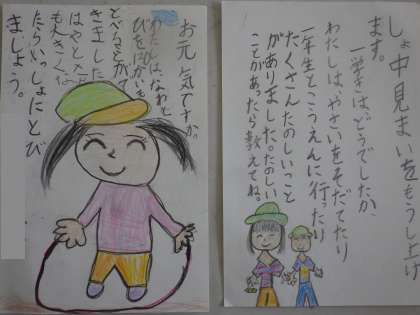 しょ中見まいをもうし上げ
ます。
一学きはどうでしたか、
わたしは、やさいをそだてたり
一年生とこうえんに行ったり
たくさんたのしいこと
がありました。たのしい
ことがあったら教えてね。
お元気ですか。
わたしは、なわと
びを
とべることがで
きました
はやとさん
も大きくな
たらいっしょにとび
ましょう。